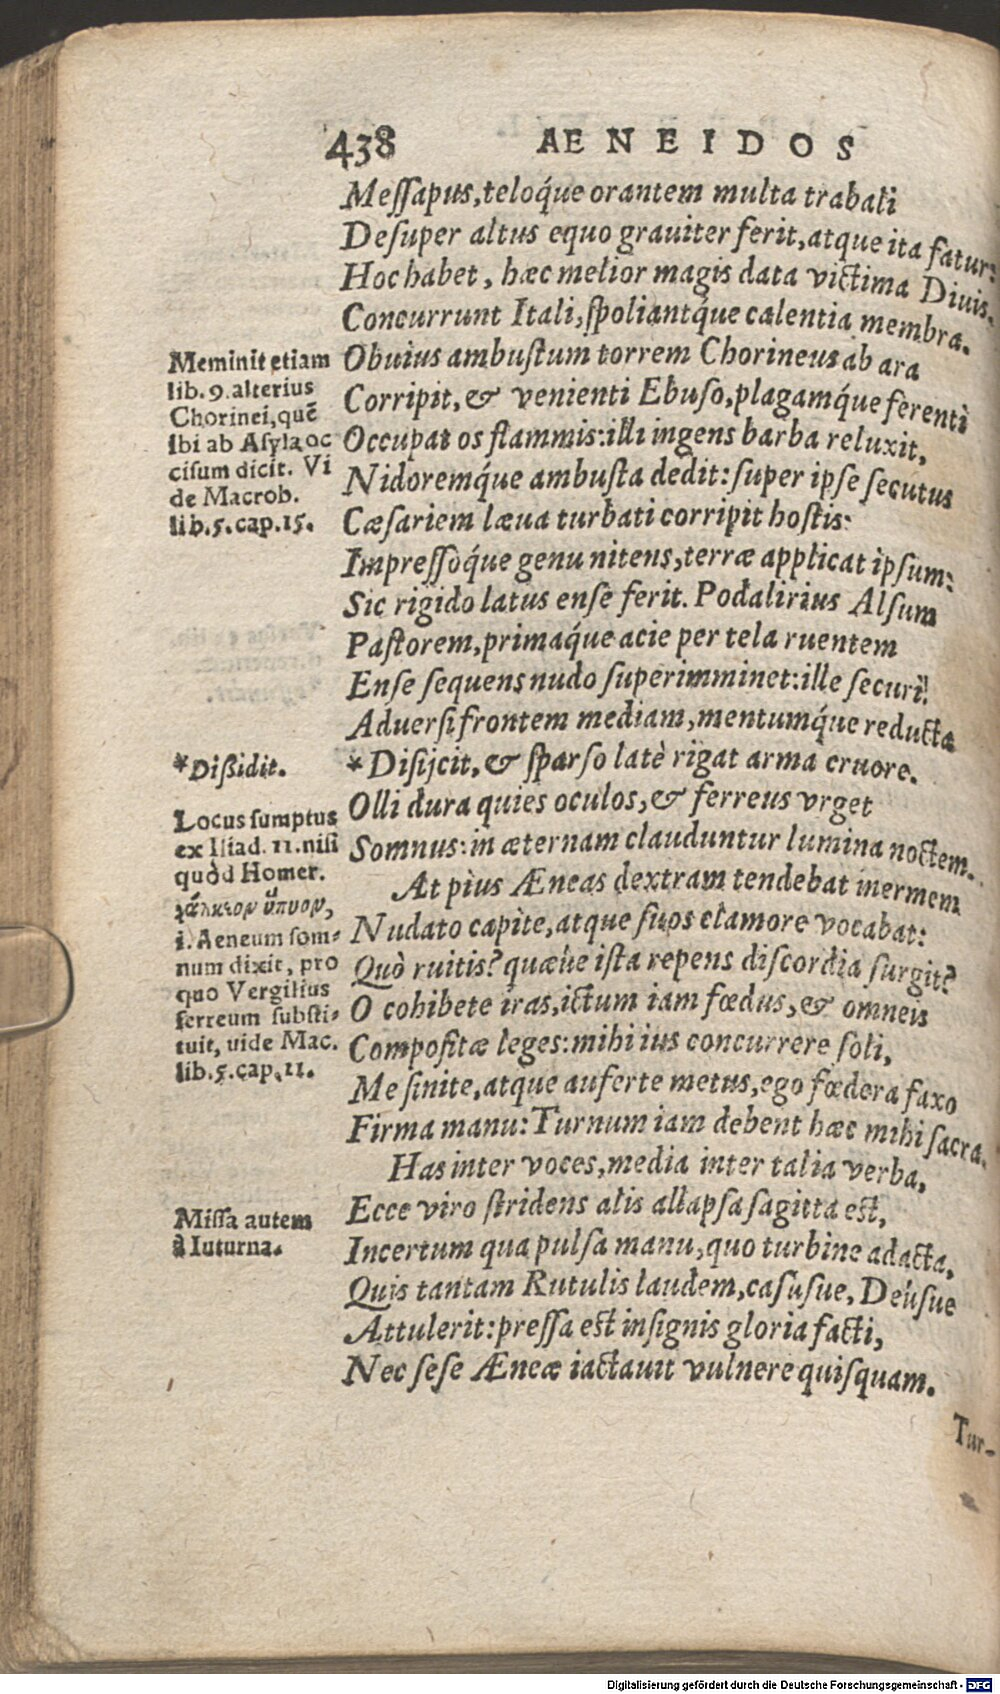 438 AENEIDOS
Meſſapus, teloq́ue orantem multa trabali
Deſuper altus equo grauiter ferit, atque ita fatur:
Hoc habet, hæc melior magis data victima Diuis.
Concurrunt Itali, ſpoliantq́ue calentia membra.
Obuius ambuſtum torrem Chorineus ab ara
Corripit, & venienti Ebuſo, plagamq́ue ferenti
Occupat os flammis: illi ingens barba reluxit,
Nidoremq́ue ambuſta dedit: ſuper ipſe ſecutus
Cæſariem læua turbati corripit hoſtis:
Impreſſoq́ue genu nitens, terræ applicat ipſum:
Sic rigido latus enſe ferit. Podalirius Alſum
Paſtorem, primaq́ue acie per tela ruentem
Enſe ſequens nudo ſuperimminet: ille ſecuri
Aduerſi frontem mediam, mentumq́ue reducta
* Diſijcit, & ſparſo latè rigat arma cruore.
Olli dura quies oculos, & ferreus vrget
Somnus: in æternam clauduntur lumina noctem.
At pius Æneas dextram tendebat inermem
Nudato capite, atque ſuos clamore vocabat:
Quò ruitis? quæùe iſta repens diſcordia ſurgit?
O cohibete iras, ictum iam fœdus, & omneis
Compoſitæ leges: mihi ius concurrere ſoli,
Me ſinite, atque auferte metus, ego fœdera faxo
Firma manu: Turnum iam debent hæc mihi ſacra.
Has inter voces, media inter talia verba,
Ecce viro ſtridens alis allapſa ſagitta eſt,
Incertum qua pulſa manu, quo turbine adacta,
Quis tantam Rutulis laudem, caſuſue, Deúſue
Attulerit: preſſa eſt inſignis gloria facti,
Nec ſeſe Æneæ iactauit vulnere quiſquam.
Tur-
Meminit etiam
lib. 9. alterius
Chorinei, quẽ
Ibi ab Aſyla oc
ciſum dicit. Vi
de Macrob.
lib. 5. cap. 15.
*Dißidit.
Locus ſumptus
ex Iliad. 11. niſi
quòd Homer.
χάλκεον ὕπνον,
i. Aeneum ſom-
num dixit, pro
quo Vergilius
ferreum ſubſti-
tuit, uide Mac.
lib. 5. cap. 11.
Miſſa autem
à Iuturna.
Digitalisierung gefördert durch die Deutsche Forschungsgemeinschaft - DFG